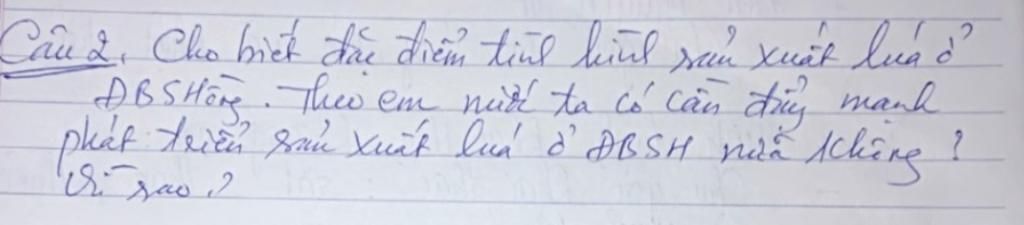 Câu 2. Cho biết đặc điểm tình hình sản xuất lúa ở
ĐBSHồng. Theo em nước ta có cần đẩy mạnh
phát triển sản xuất lúa ở ĐBSH nữa không?
Vì sao?